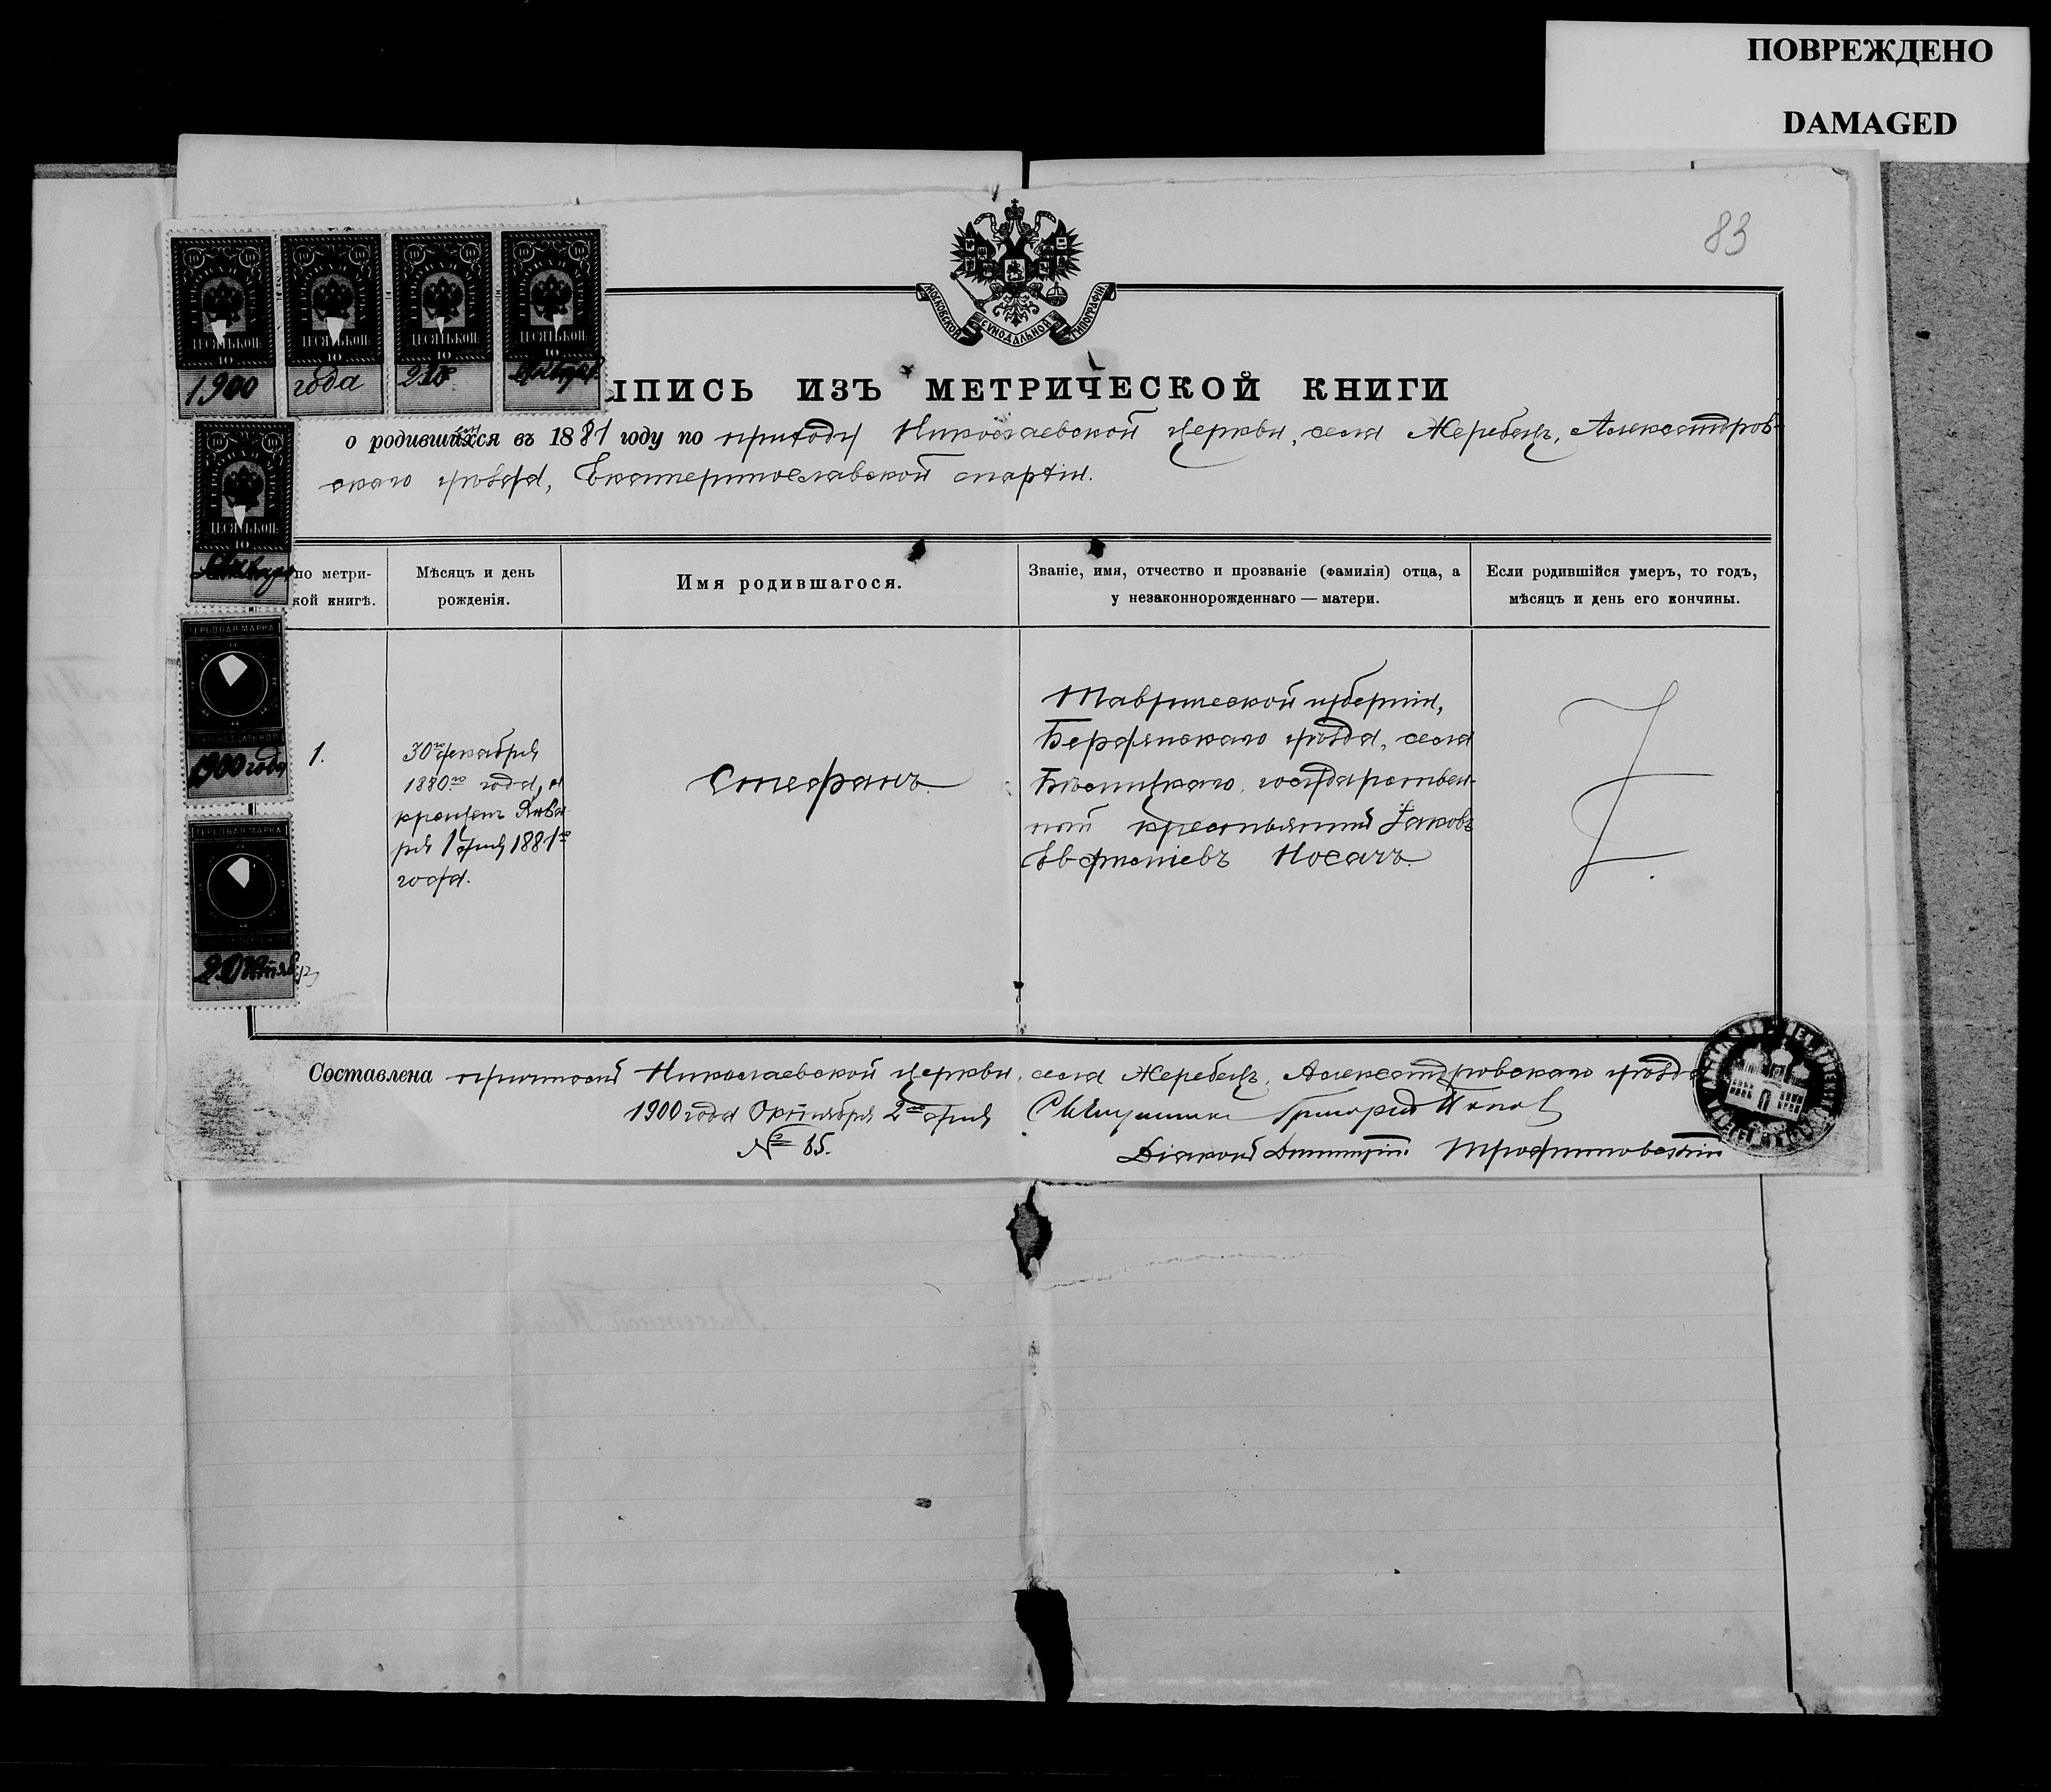 ПОВРЕЖДЕНО
DAMAGED
83
МОСКОВСКОЙ СѴНОДАЛЬНОЙ ТИПОГРАФІИ
ГЕРБОВАЯ МАРКА ДЕСЯТЬ КОП. 10
1900 года
ЫПИСЬ ИЗЪ МЕТРИЧЕСКОЙ КНИГИ
о родившихся въ 1881 году по приходу Николаевской церкви, села Жеребецъ, Александров-
скаго уѣзда, Екатеринославской епархіи.
по метри-
кой книгѣ.
Мѣсяцъ и день
рожденія.
Имя родившагося.
Званіе, имя, отчество и прозваніе (фамилія) отца, а
у незаконнорожденнаго — матери.
Если родившійся умеръ, то годъ,
мѣсяцъ и день его кончины.
1.
30го декабря
1880го года, а
крещенъ Янва
ря 1 дня 1881го
года.
Стефанъ
Таврической губерніи,
Бердянскаго уѣзда, села
государствен-
ный крестьянинъ Іаковъ
Евфиміевъ Носачъ
ГЕРБОВАЯ МАРКА
1900 года
ГЕРБОВАЯ МАРКА
2 Октября
Составлена причтомъ Николаевской церкви, села Жеребецъ, Александровскаго уѣзда
1900 года Октября 2го дня Священникъ Григорій Попов
№ 85.
Діаконъ Димитрій Трофимовскій